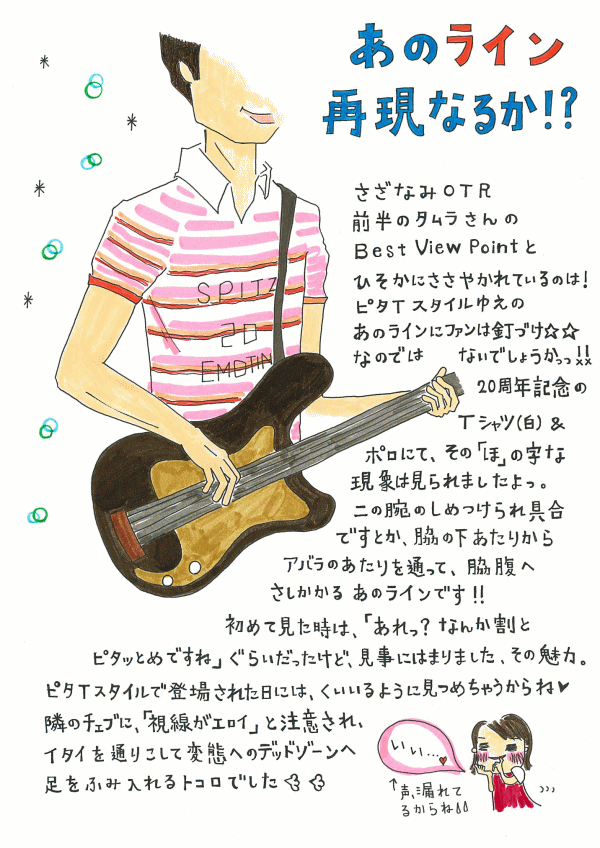 あのライン
再現なるか!?
さざなみOTR
前半のタムラさんの
Best View Pointと
ひそかにささやかれているのは!
ピタTスタイルゆえの
あのラインにファンは釘づけ☆☆
なのでは ないでしょうかっっ!!
20周年記念の
Tシャツ(白)&
ポロにて、その「ほ」の字な
現象は見られましたよっ。
二の腕のしめつけられ具合
ですとか、脇の下あたりから
アバラのあたりを通って、脇腹へ
さしかかる あのラインです!!
初めて見た時は、「あれっ? なんか割と
ピタッとめですね」ぐらいだったけど、見事にはまりました、その魅力。
ピタTスタイルで登場された日には、くいいるように見つめちゃうからね♥
隣のチェブに、「視線がエロイ」と注意され、
イタイを通りこして変態へのデッドゾーンへ
足をふみ入れるトコロでした
SPITZ
20
EMOTIN
いい…♥
↑声、漏れて
るからね